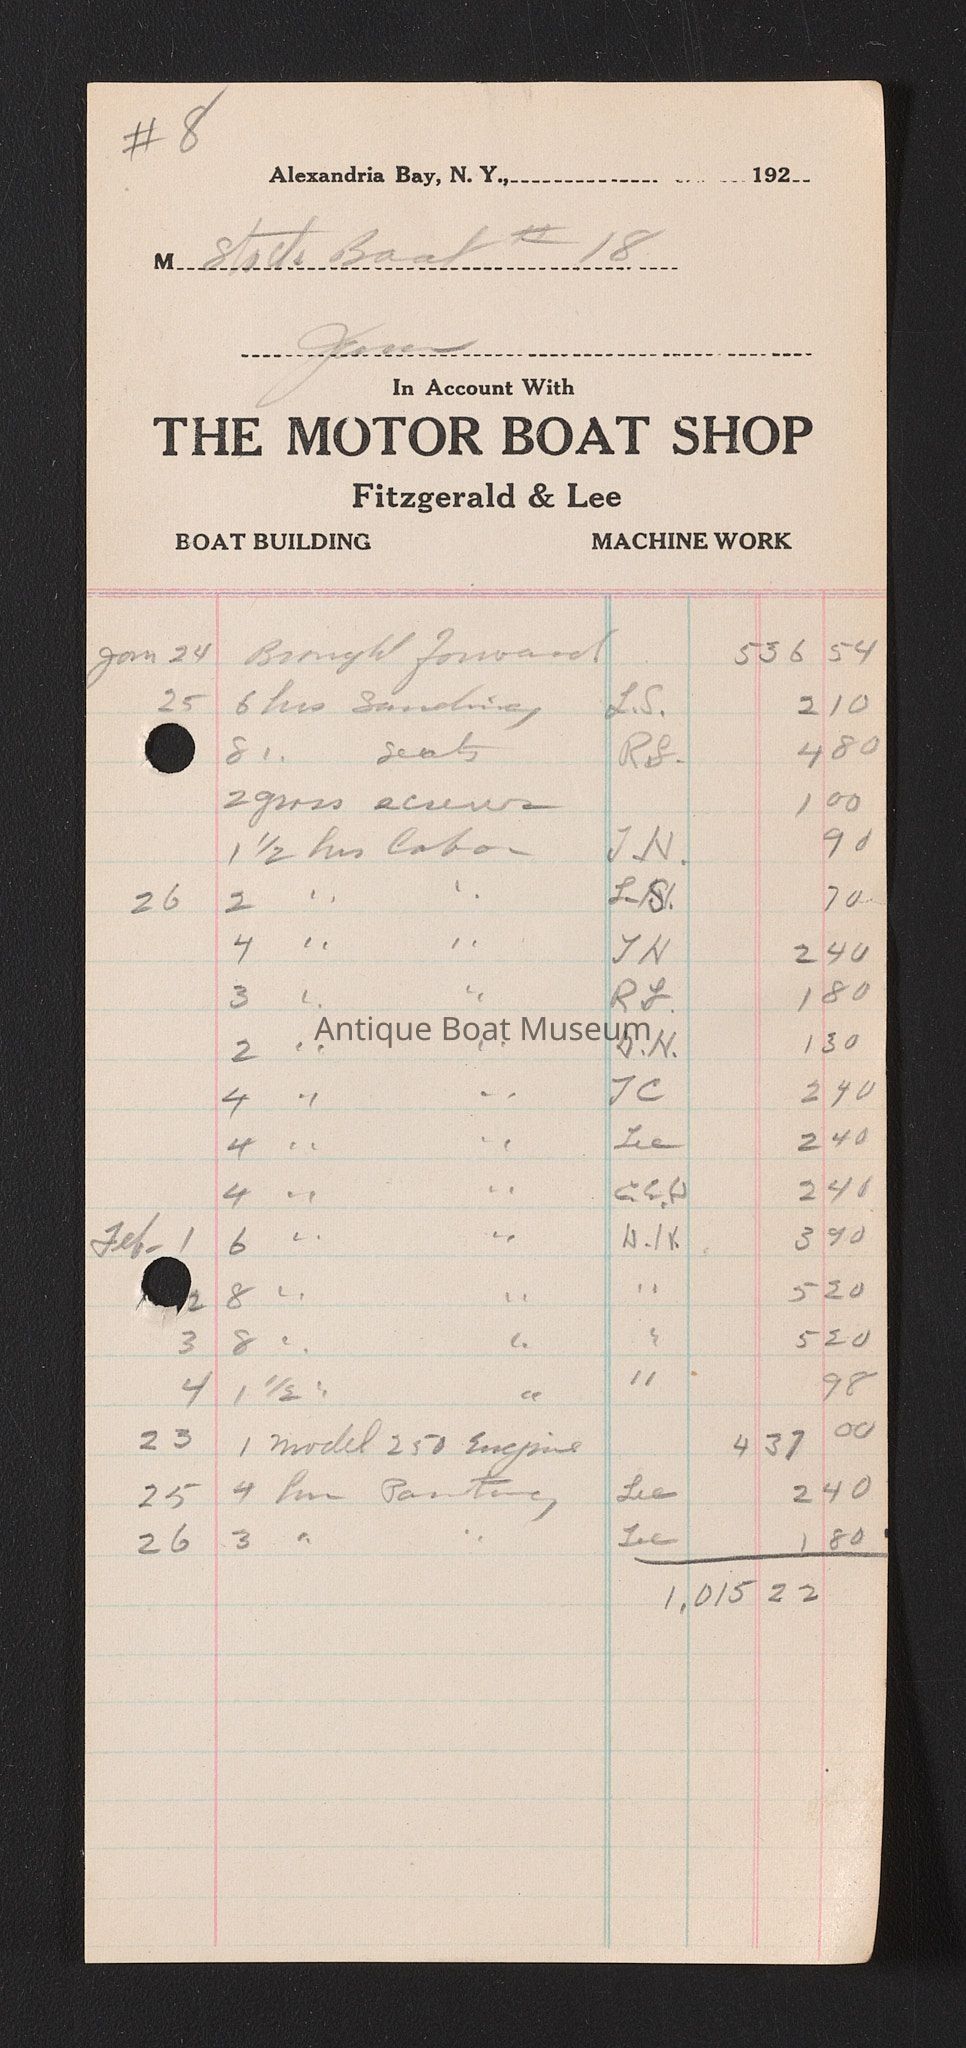 # 8
Alexandria Bay, N. Y., 192
M Stock Boat # 18
In Account With
THE MOTOR BOAT SHOP
Fitzgerald & Lee
BOAT BUILDING MACHINE WORK
Jan 24 Brought Forward 536 54
25 6 hrs Sanding L.S. 2 10
8 " seats 4 80
2 gross screws 1 00
1 1/2 hrs labor T.N. 90
26 2 " " L.S. 70
4 " " T N 2 40
3 " " 1 80
Antique Boat Museum
2 " " 1 30
4 " " T C 2 40
4 " " Lee 2 40
4 " " 2 40
Feb. 1 6 " " 3 90
2 8 " " " 5 20
3 8 " " " 5 20
4 1 1/2 " " " 98
23 1 model 250 Engine 437 00
25 4 hrs Painting Lee 2 40
26 3 " " Lee 1 80
1,015 22